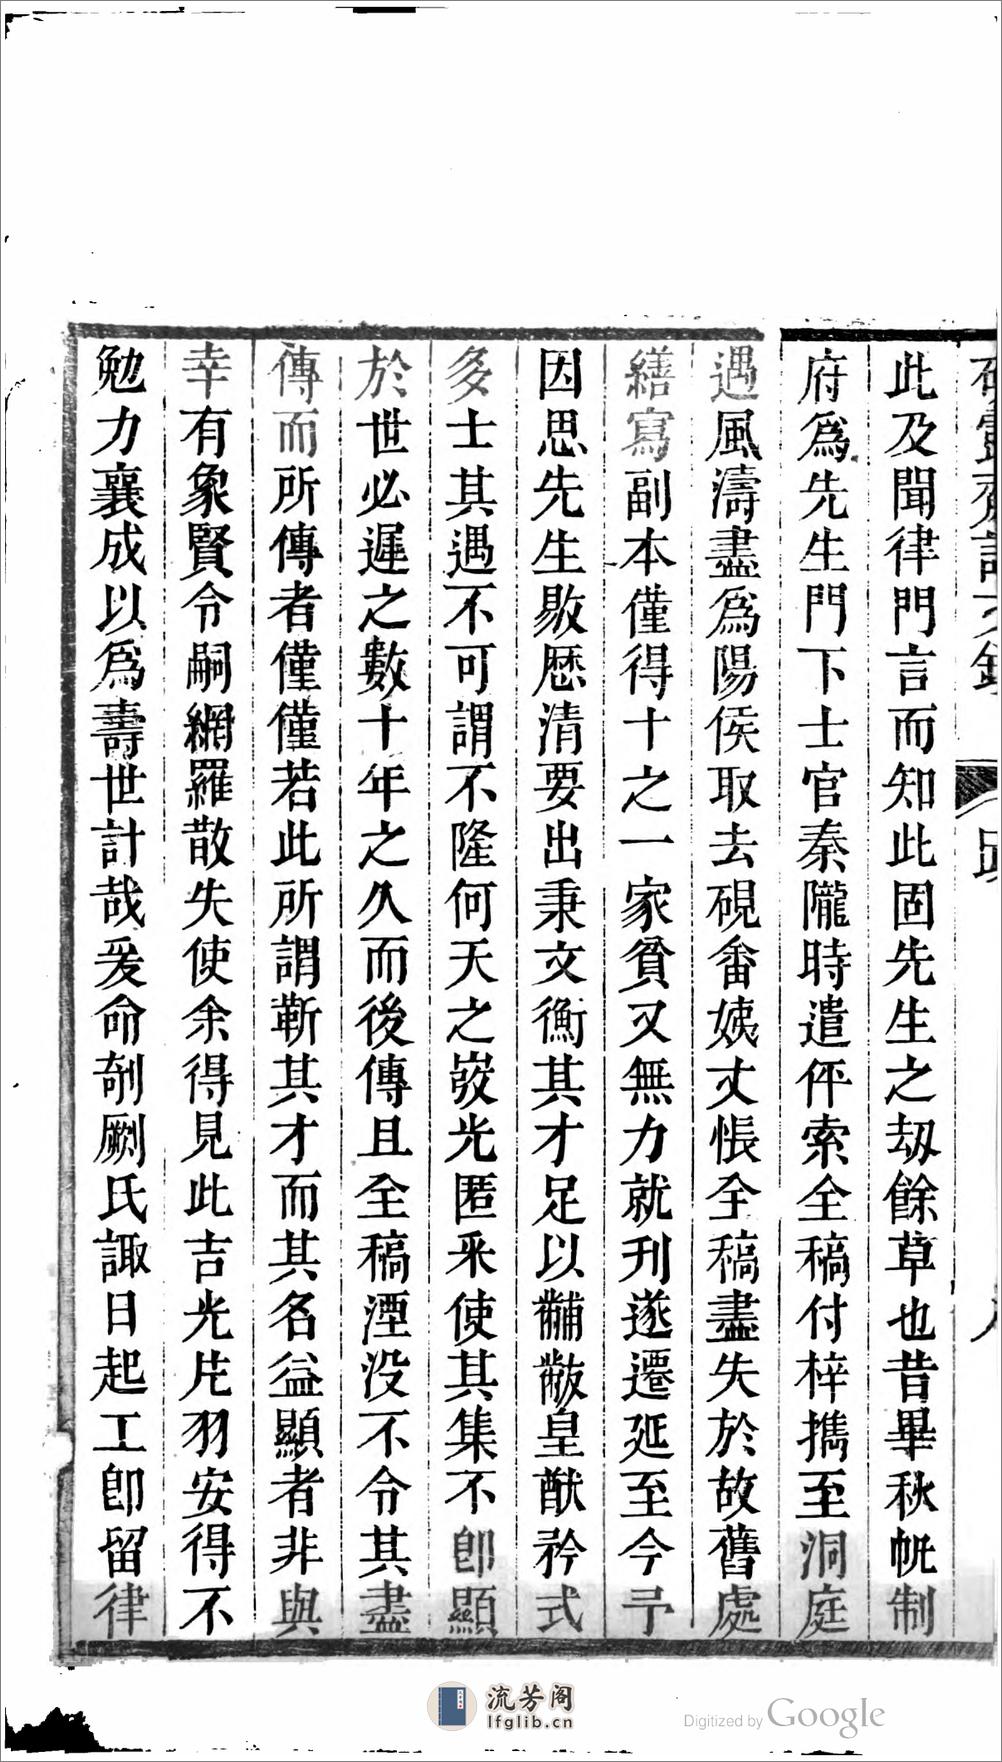 此及聞律門言而知此固先生之刼餘草也昔畢秋帆制
府爲先生門下士官秦隴時遣伻索全稿付梓攜至洞庭
遇風濤盡爲陽侯取去硯畬姨丈悵全稿盡失於故舊處
繕寫副本僅得十之一家貧又無力就刋遂遷延至今予
因思先生敭歷清要出秉文衡其才足以黼黻皇猷矜式
多士其遇不可謂不隆何天之嗀光匿釆使其集不卽顯
於世必遲之數十年之久而後傳且全稿湮没不令其盡
傳而所傳者僅僅若此所謂靳其才而其名益顯者非與
幸有象賢令嗣網羅散失使余得見此吉光片羽安得不
勉力襄成以爲壽世計哉爰命剞劂氏諏日起工卽留律
跋
八
流芳阁
lfglib.cn
Digitized by Google